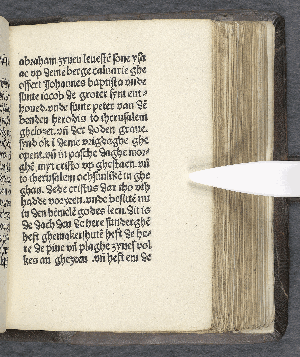 abraham zynen leuestē sone ysa
ac vp deme berge caluarie ghe
offert Johannes baptista vnde
sunte iacob de groter synt ent
houed. vnde sunte peter van dē
benden herodis to iherusalem
gheloset. vn̄ der doden graue
synd ok i deme vrigdaghe ghe
opent. vn̄ in pasche daghe mor
ghē myt cristo vp ghestaen. vn̄
to iherusalem
ghan. Dede cristus dar
hadde vnde
in den hēmele godes leen. Dit is
de dach den de here sunderghē
heft ghemaket hute heft de he
re de pine vn̄ plaghe zynes vol
kes an gheseen. vn̄ heft em de